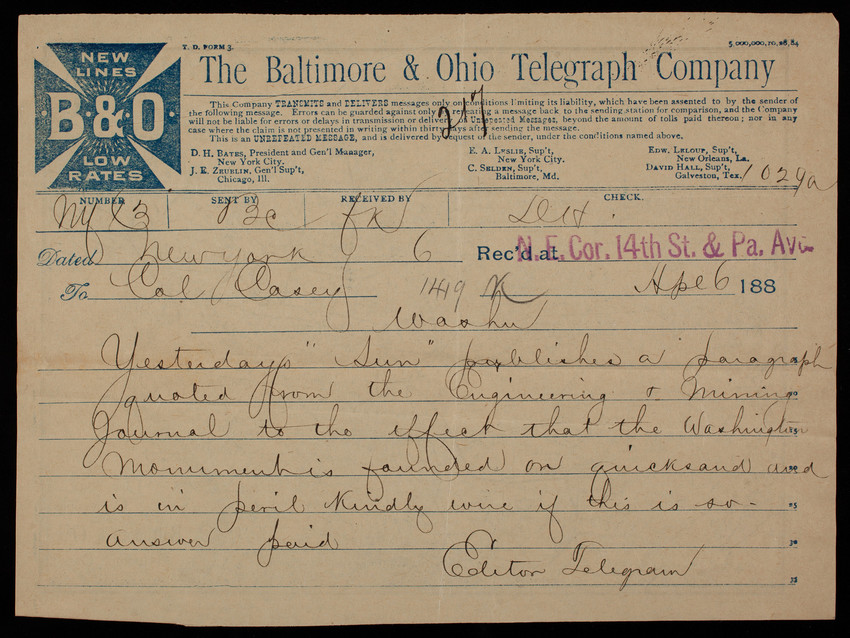 T. D. FORM 3.
5,000,000,10,28,84
NEW
LINES
B & O
LOW
RATES
The Baltimore & Ohio Telegraph Company
217
This Company TRANSMITS and DELIVERS messages only on conditions limiting its liability, which have been assented to by the sender of
the following message. Errors can be guarded against only by repeating a message back to the sending station for comparison, and the Company
will not be liable for errors or delays in transmission or delivery of Unrepeated Messages, beyond the amount of tolls paid thereon; nor in any
case where the claim is not presented in writing within thirty days after sending the message.
This is an UNREPEATED MESSAGE, and is delivered by request of the sender, under the conditions named above.
D. H. BATES, President and Gen'l Manager,
New York City.
J. E. ZEUBLIN, Gen'l Sup't,
Chicago, Ill.
E. A. LESLIE, Sup't,
New York City.
C. SELDEN, Sup't,
Baltimore, Md.
EDW. LELOUP, Sup't,
New Orleans, La.
DAVID HALL, Sup't,
Galveston, Tex.
1029a
NUMBER SENT BY RECEIVED BY CHECK.
Dated New York 6 Rec'd at N. E. Cor. 14th St. & Pa. Ave
To Col Casey 1419 K Apl 6 188
Washn
Yesterdays "Sun" publishes a paragraph
quoted from the Engineering & Mining
Journal to the effect that the Washington
Monument is founded on quicksand and
is in peril Kindly wire if this is so-
answer paid
Editor Telegram